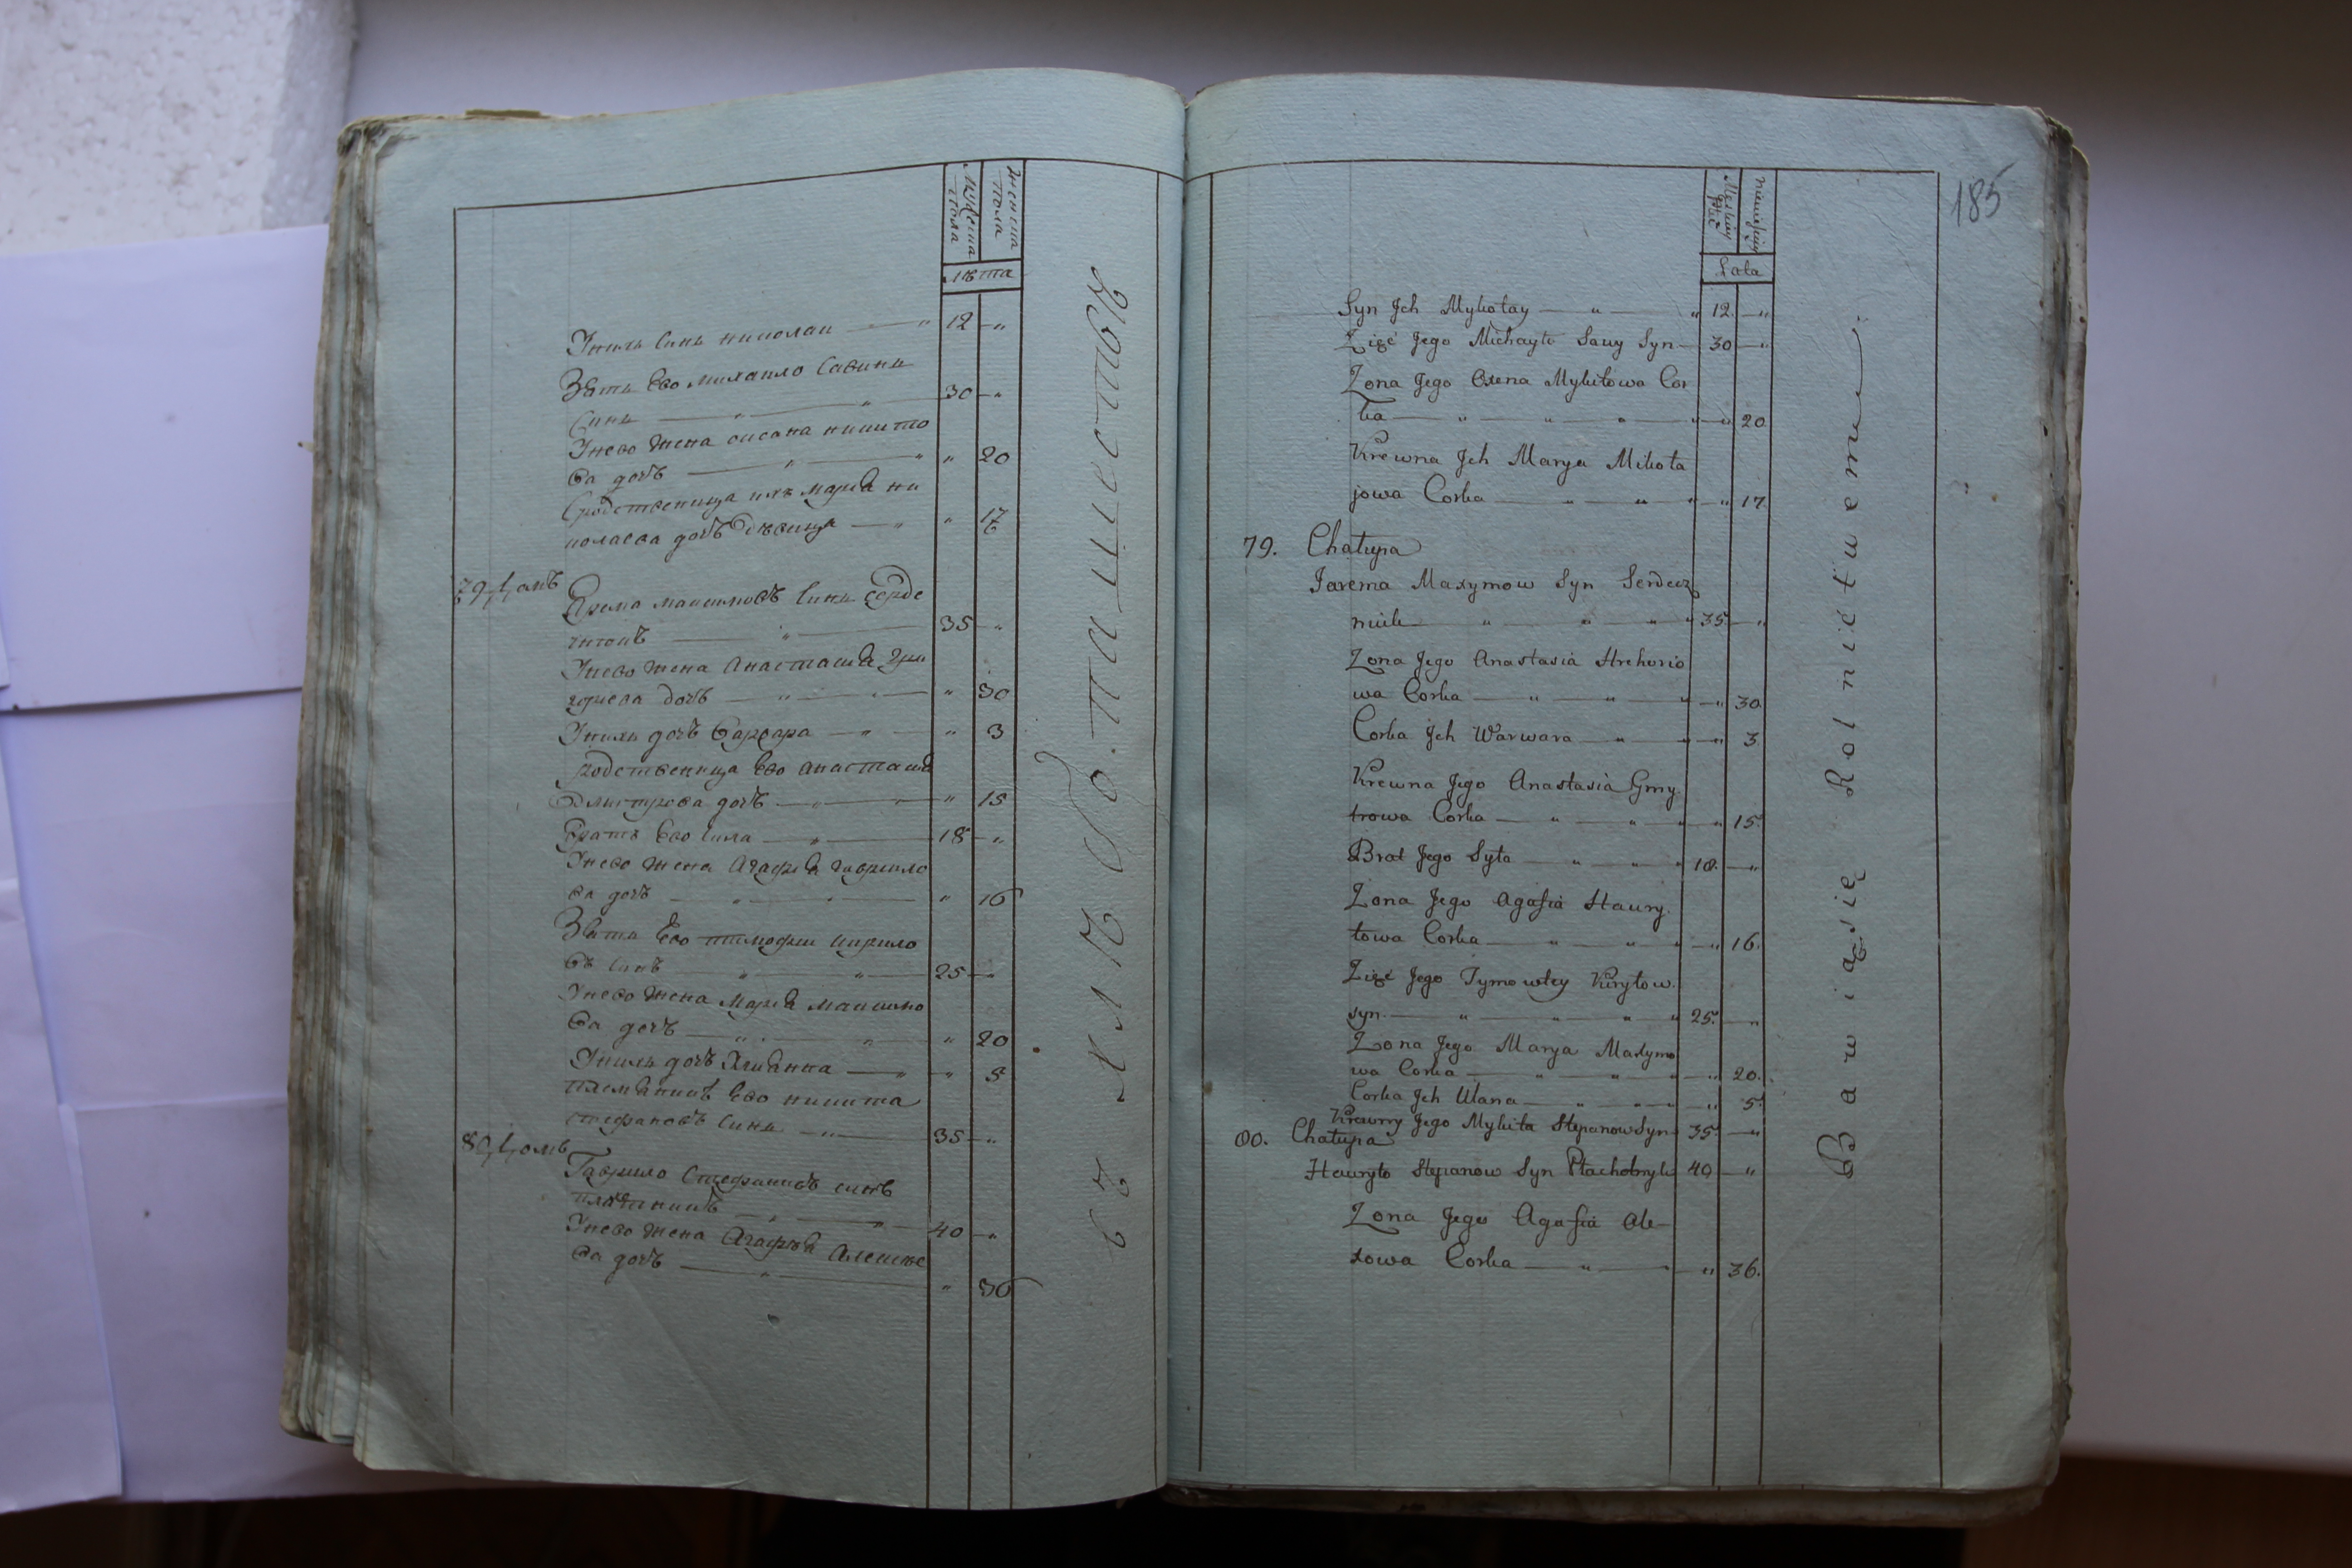 мужеска пола
женска пола
лѣта
Ихъ синъ николаи — " 12 — "
Зять Ево михаило Савинъ
Синъ — " — " 30 — "
Унево жена оксана никито
ва дочъ — " — " " 20
Сродственица ихъ мария ни
колаева дочъ девица — " " 17
79 домъ
Ярема максимовъ Синъ Серде
чнокъ — " — 35 — "
Унево жена Анастасия Гри
гориева дочъ — " — " 30
Унихъ дочъ Варвара — " — " 3
родственица Ево анастасия
Дмитрова дочъ — " — " " 15
Братъ Ево Сила — " — 18 — "
Унево жена Агафия гаврило
ва дочъ — " — " 16
Зять Ево тимофеи кирило
въ синъ — " — " 25 — "
Унево жена Мария максимо
ва дочъ — " — " " 20
Унихъ дочъ Улианна — " — " 5
племянникъ Ево никита
стефановъ Синъ — " — 35 — "
80 домъ
Гаврило Стефановъ синъ
— " — " 40 — "
Унево жена Агафия Алексѣе
ва дочъ — " — " 36
въ хлѣбопашествѣ
185
Męskiey płci
niewieściey
Lata
Syn Jch Mykołay — " — " 12. — "
Zięć Jego Michayło Sawy Syn — 30 — "
Zona Jego Oxena Mykitowa Cor
ka — " — " — " — " — " 20
Krewna Jch Marya Mikoła
jowa Corka — " — " " — " 17.
79. Chałupa
Jarema Maxymow Syn Serdecz
nik — " — " — " — " 35. — "
Zona Jego Anastasia Hrehorio
wa Corka — " — " — " — " 30.
Corka Jch Warwara — " — " — " 3.
Krewna Jego Anastasia Gmy
trowa Corka — " — " — " 15.
Brat Jego Syła — " — " — " 18. — "
Zona Jego Agafia Hawry
łowa Corka — " — " — " — " 16.
Zięć Jego Tymowtey Kiryłow
syn — " — " — " — " 25. — "
Zona Jego Marya Maxymo
wa Corka — " — " — " — " 20.
Corka Jch Ulana — " — " — " — " 5.
Krewny Jego Mykita Stepanow Syn 35. — "
80. Chałupa
Hawryło Stepanow Syn 40 — "
Zona Jego Agafia Ale-
xowa Corka — " — " — " 36.
Bawiąsię Rolnictwem